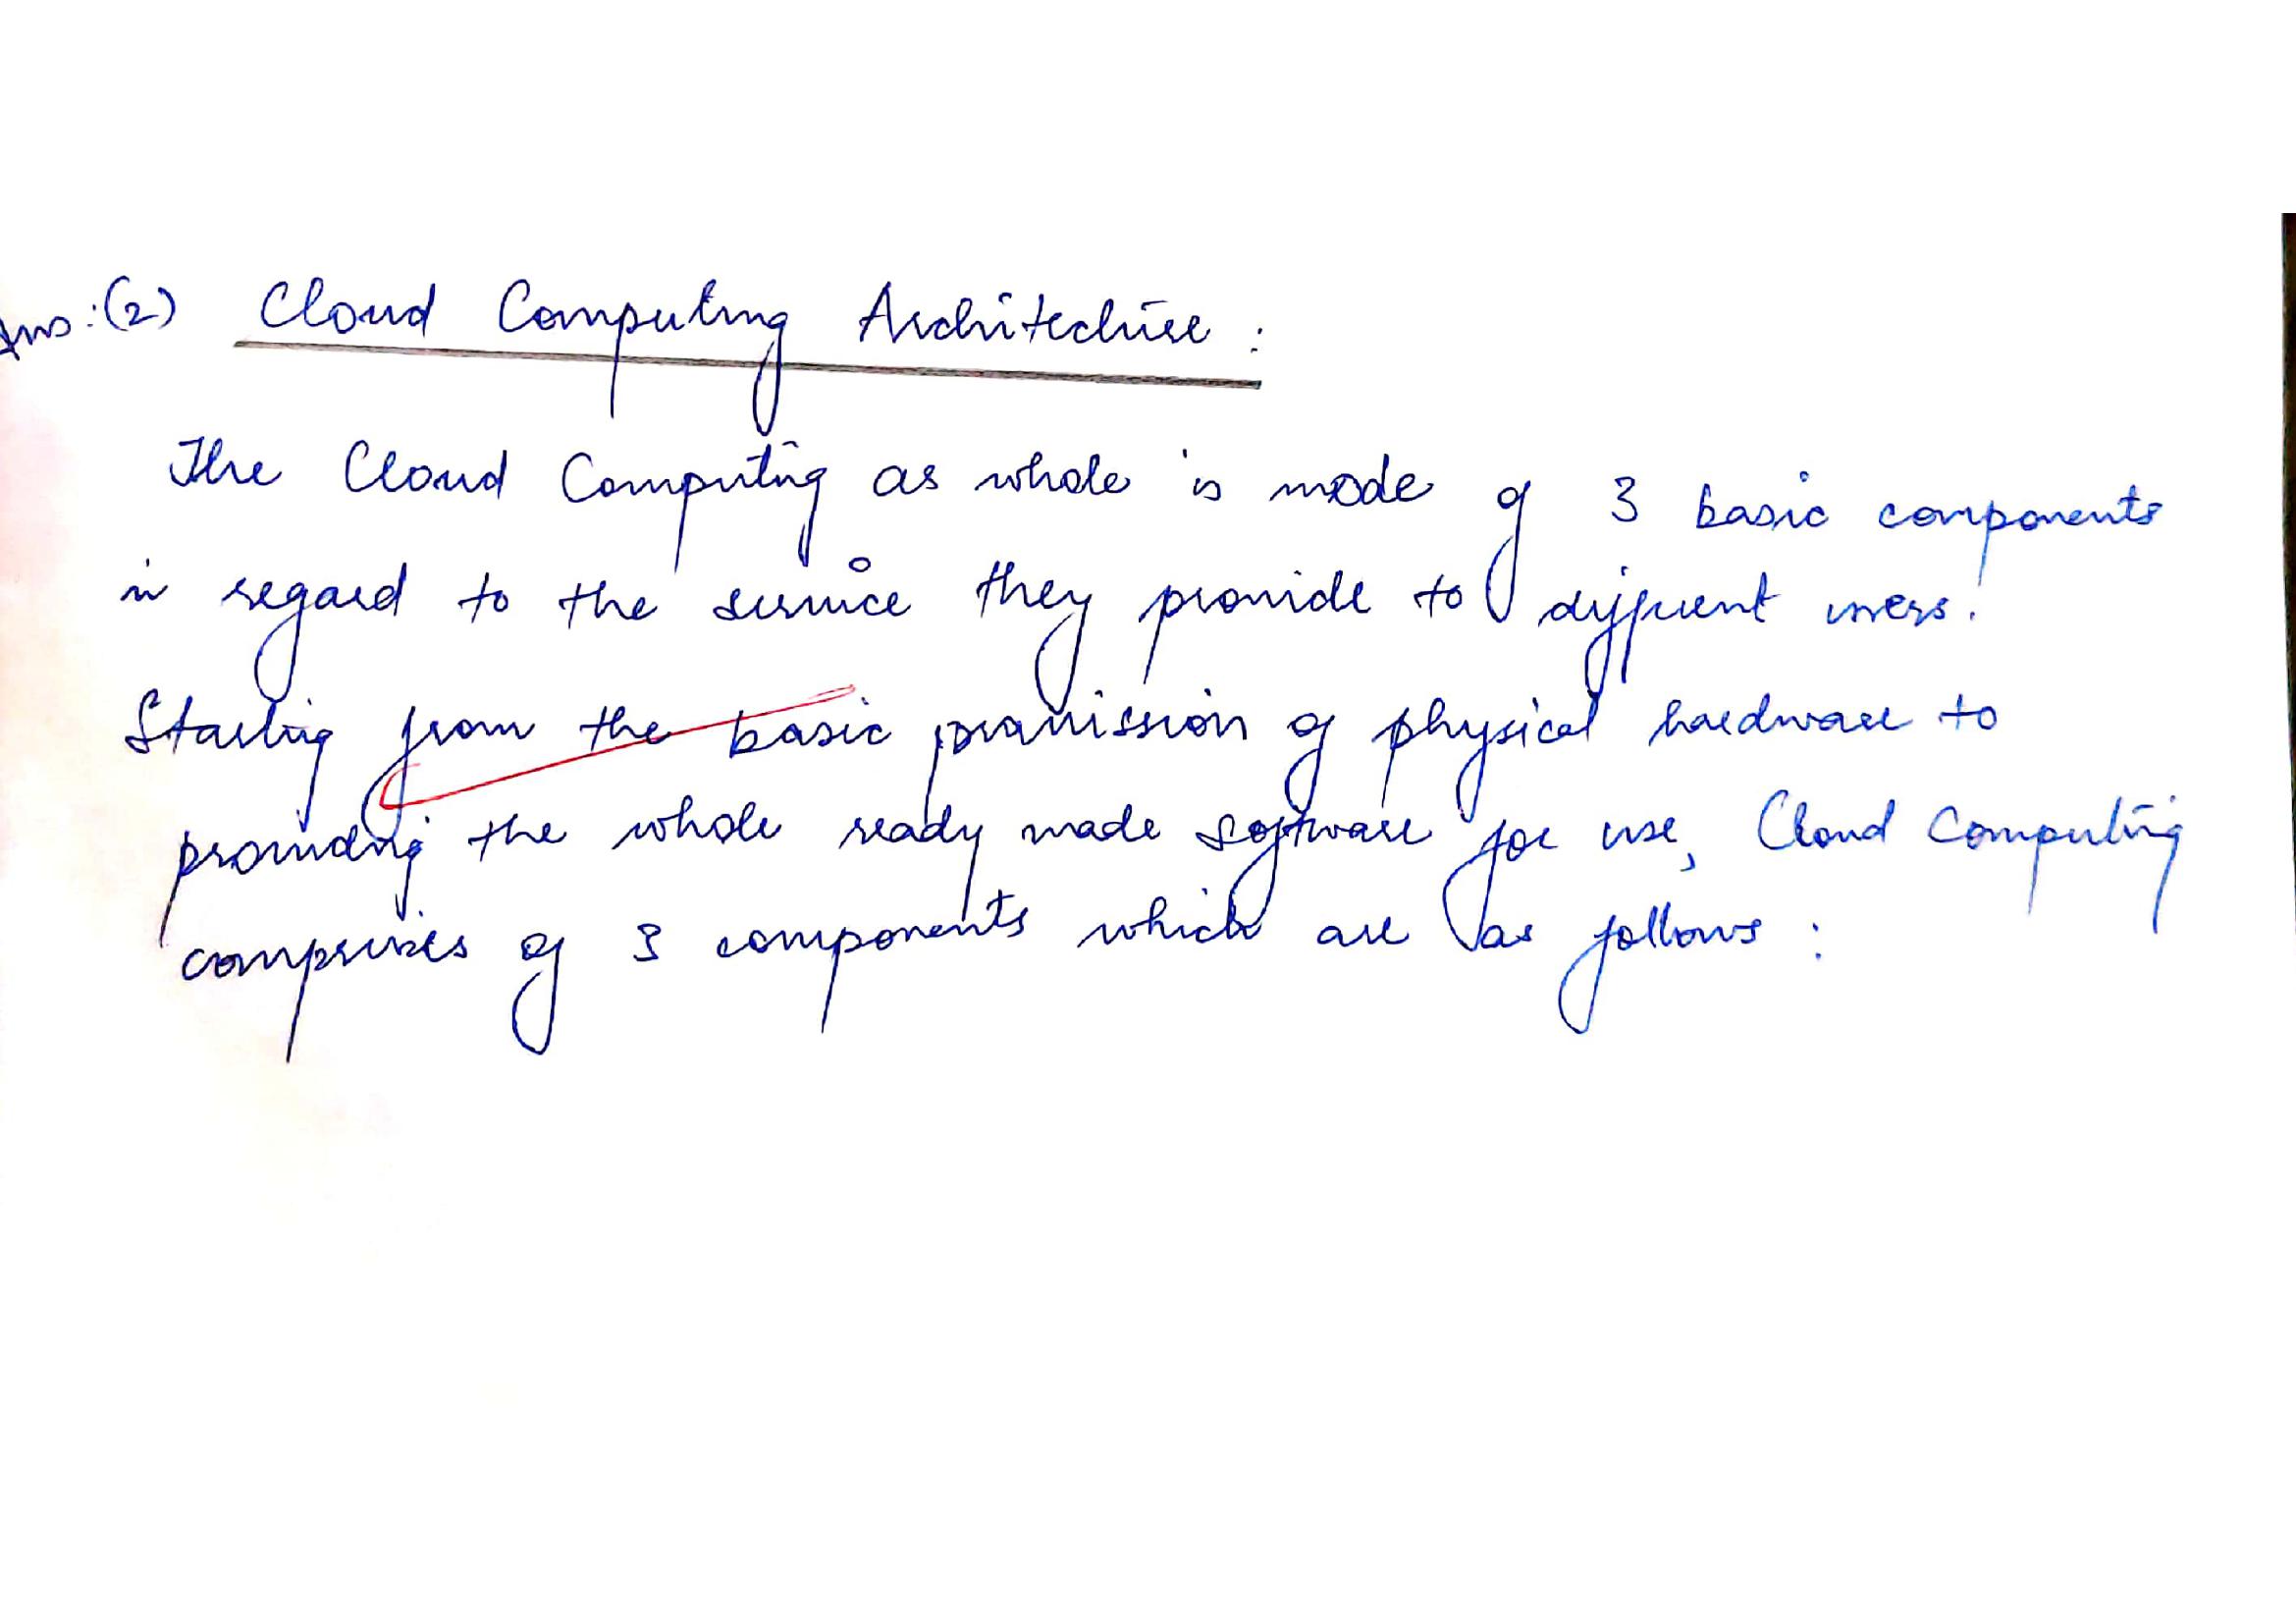 Ans:(2) Cloud Computing Architechure :
The Cloud Computing as whole is made of 3 basic components
in regard to the service they provide to different users.
Starting from the basic provission of physical hardware to
providing the whole ready made software for use, Cloud Computing
comprises of 3 components which are as follows :